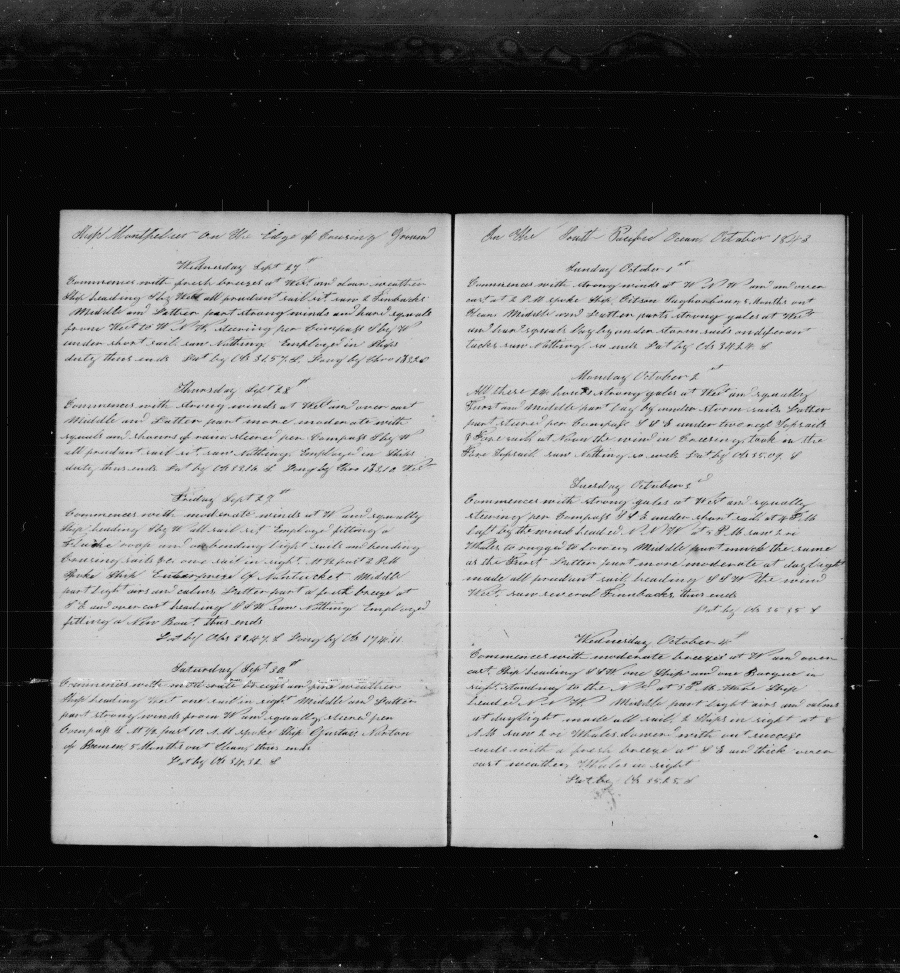 Ship Montpelier On The Edge of Cruising Ground
Wednesday Sept 27th
Commences with fresh breezes at West and clear weather
Ship heading S by W all prudent sail set saw 2 Finbacks
Middle and Latter part strong winds and hard squals
from West to W N W steering per Compass S by W
under short sail saw Nothing Employed in Ships
duty thus ends Lat by Obs 36.57 S Long by Chro
Thursday Sept 28th
Commences with strong winds at West and over cast
Middle and Latter part more moderate with
squals and showers of rain steered per Compass S by W
all prudent sail set saw Nothing Employed in Ships
duty thus ends Lat by Obs Long by Chro West
Friday Sept 29th
Commences with moderate winds at W and squally
Ship heading S by W all sail set Employed fitting a
coop and unbending Light sails and bending
Cousing sails &c one sail in sight M ½ past 2 P.M
Spoke Ship Enterprize Of Nantucket Middle
part Light airs and calms Latter part a fresh breeze at
S E and over cast heading S S W saw Nothing Employed
fitting a New Boat thus ends
Lat by Obs S Long by Ob 174.11
Saturday Sept 30th
Commences with moderate breezes and fine weather
Ship heading West one sail in sight Middle and Latter
part strong winds from W and squally steered per
Compass S ½ past 10 A.M spoke Ship Gustav Norton
of Bremen 5 Months out Clean thus ends
Lat by Ob 34.32 S
In The South Pacific Ocean October 1848
Sunday October 1st
Commences with strong winds at W N W and over
cast at 2 P.M spoke Ship 5 Months out
Clean Middle and Latter parts strong gales at West
and hard squals Lay by under storm sails on diferent
tacks saw Nothing so ends Lat by Obs 34.24 S
Monday October 2nd
All these 24 hours strong gales at West and squally
First and Middle part Lay by under storm sails Latter
part steered per Compass S S E under two reef Topsails
& Fore sail at Noon the wind in Creesing took in the
Fore Topsail saw Nothing so ends Lat by Ob 35.09 S
Tuesday October 3rd
Commences with strong gales at West and squally
steering per Compass S S E under short sail at 4 P.M
Luft by the wind headed N N W at 5 P.M saw 2 or
Whales to rugged to Lower Middle part much the same
as the First Latter part more moderate at day light
made all prudent sail heading S S W the wind
West saw several Finnbacks thus ends
Lat by Ob 35 35 S
Wednesday October 4th
Commences with moderate breezes at W and over
cast Ship heading S S W one Ship and one Barque in
sight standing to the N at 5 P.M Wake Ship
headed N N W Middle part Light airs and calms
at daylight made all sail 2 Ships in sight at 8
A.M saw 2 or Whales Lowered with out success
ends with a fresh breeze at S E and thick over
cast weather Whales in sight
Lat by Ob 35.25 S